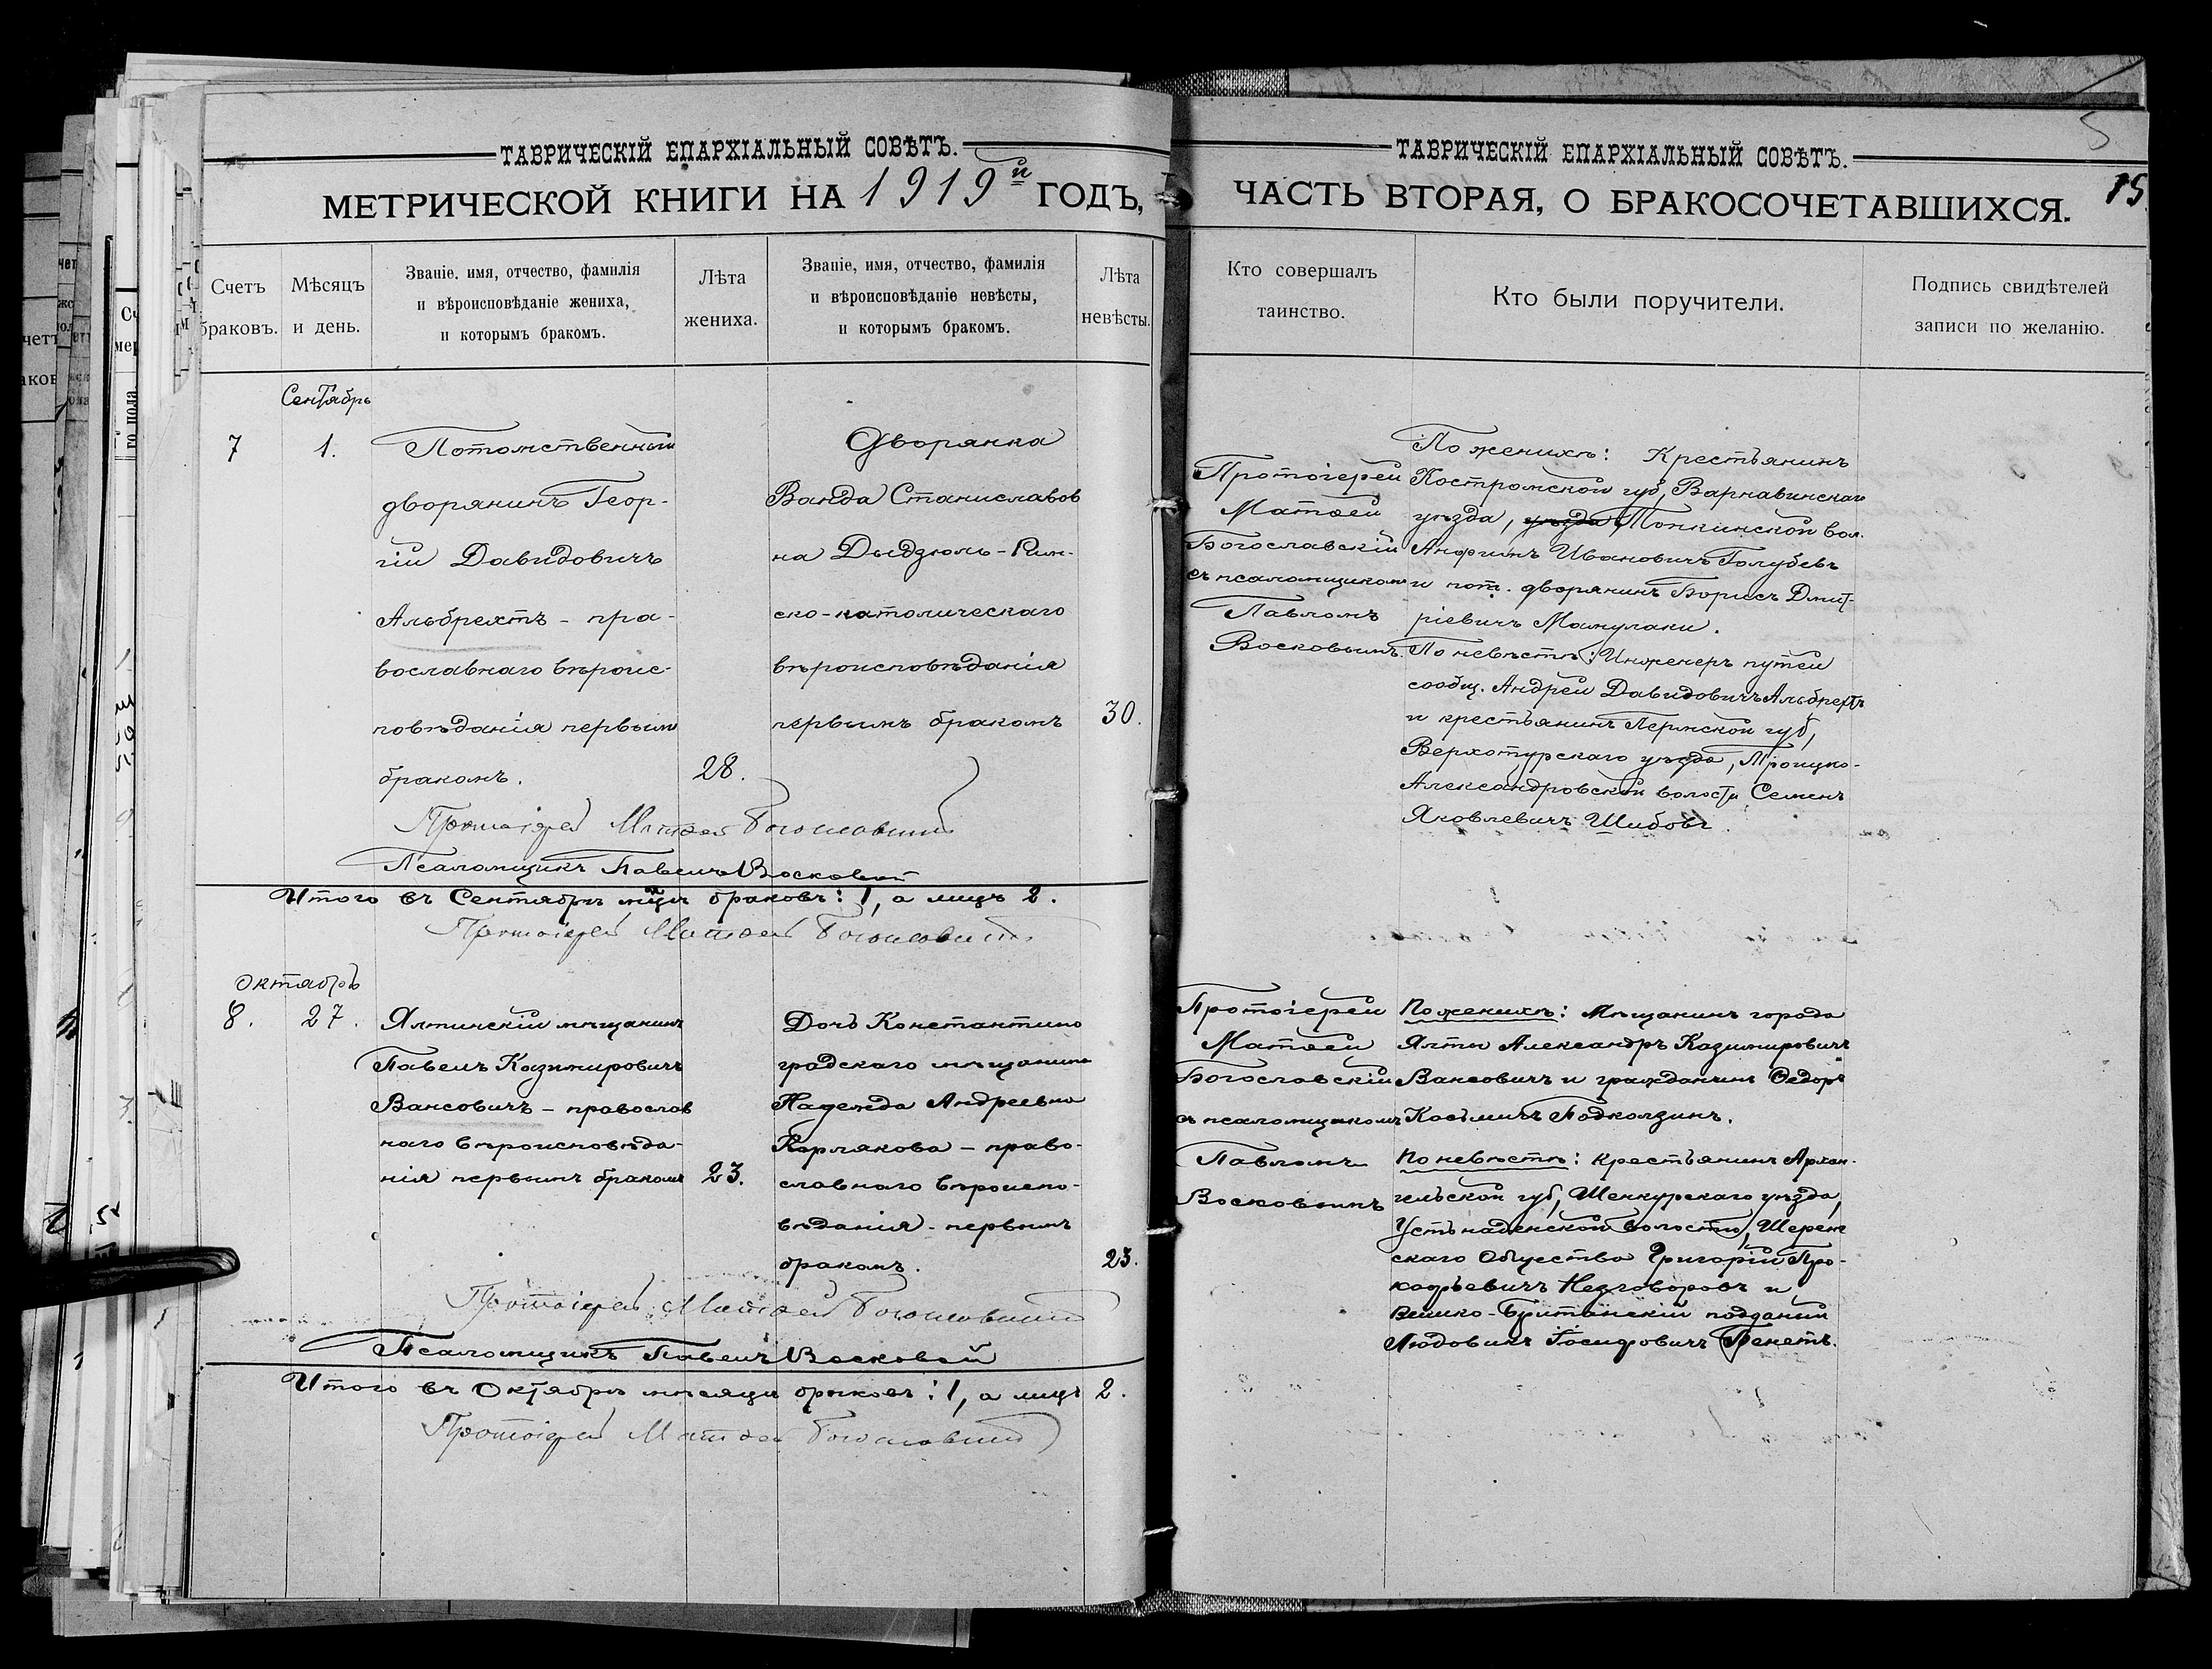 ТАВРИЧЕСКІЙ ЕПАРХІАЛЬНЫЙ СОВѢТЪ.
МЕТРИЧЕСКОЙ КНИГИ НА 1919й ГОДЪ,
Счетъ браковъ.
Мѣсяцъ и день.
Званіе, имя, отчество, фамилія
и вѣроисповѣданіе жениха,
и которымъ бракомъ.
Лѣта жениха.
Званіе, имя, отчество, фамилія
и вѣроисповѣданіе невѣсты,
и которымъ бракомъ.
Лѣта невѣсты.
Сентябрь
7
1.
Потомственный
дворянинъ Геор-
гій Давидовичъ
Альбрехтъ - пра-
вославнаго вѣроис-
повѣданія первым
бракомъ.
28.
Дворянка
Ванда Станиславов
на Дыдзюль - Рим-
ско-католическаго
вѣроисповѣданія
первымъ бракомъ
30.
Протоіерей Матѳей Богословскій
Псаломщикъ Павелъ Восковой
Итого въ Сентябрѣ мцѣ браковъ: 1, а лицъ 2.
Протоіерей Матѳей Богословскій
Октябрь
8.
27.
Ялтинскій мѣщанинъ
Павелъ Казимировичъ
Вансовичъ - православ
наго вѣроисповѣда-
нія первымъ бракомъ
23.
Дочь Константино
градскаго мѣщанина
Надежда Андреевна
Корлякова - право-
славнаго вѣроиспо-
вѣданія - первымъ
бракомъ.
23.
Протоіерей Матѳей Богословскій
Псаломщикъ Павелъ Восковой
Итого въ Октябрѣ мѣсяцѣ браковъ: 1, а лицъ 2.
Протоіерей Матѳей Богословскій
5
ТАВРИЧЕСКІЙ ЕПАРХІАЛЬНЫЙ СОВѢТЪ.
ЧАСТЬ ВТОРАЯ, О БРАКОСОЧЕТАВШИХСЯ.
15
Кто совершалъ
таинство.
Кто были поручители.
Подпись свидѣтелей
записи по желанію.
Протоіерей
Матѳей
Богославскій
съ псаломщикомъ
Павломъ
Восковымъ.
По женихѣ: Крестьянинъ
Костромской губ, Варнавинскаго
уѣзда, уѣзда Тонкинской вол.
Анфимъ Ивановичъ Голубевъ
и пот. дворянинъ Борисъ Дмит-
ріевичъ Мамулаки.
По невѣстѣ: Инженеръ путей
сообщ. Андрей Давидовичъ Альбрехтъ
и крестьянинъ Пермской губ,
Верхотурскаго уѣзда, Троицко-
Александровской волости Семенъ
Яковлевичъ Шибовъ.
Протоіерей
Матѳей
Богословскій
съ псаломщикомъ
Павломъ
Восковымъ
По женихѣ: Мѣщанинъ города
Ялты Александръ Казимировичъ
Вансовичъ и гражданинъ Ѳедоръ
Косьмичъ Подколзинъ.
По невѣстѣ: Крестьянинъ Архан-
гельской губ, Шенкурскаго уѣзда,
Устьпаденской волости,
скаго Общества Григорій Про-
кофьевичъ Незговоровъ и
Велико-Британскій подданый
Людовикъ Іосифовичъ Пекетъ.